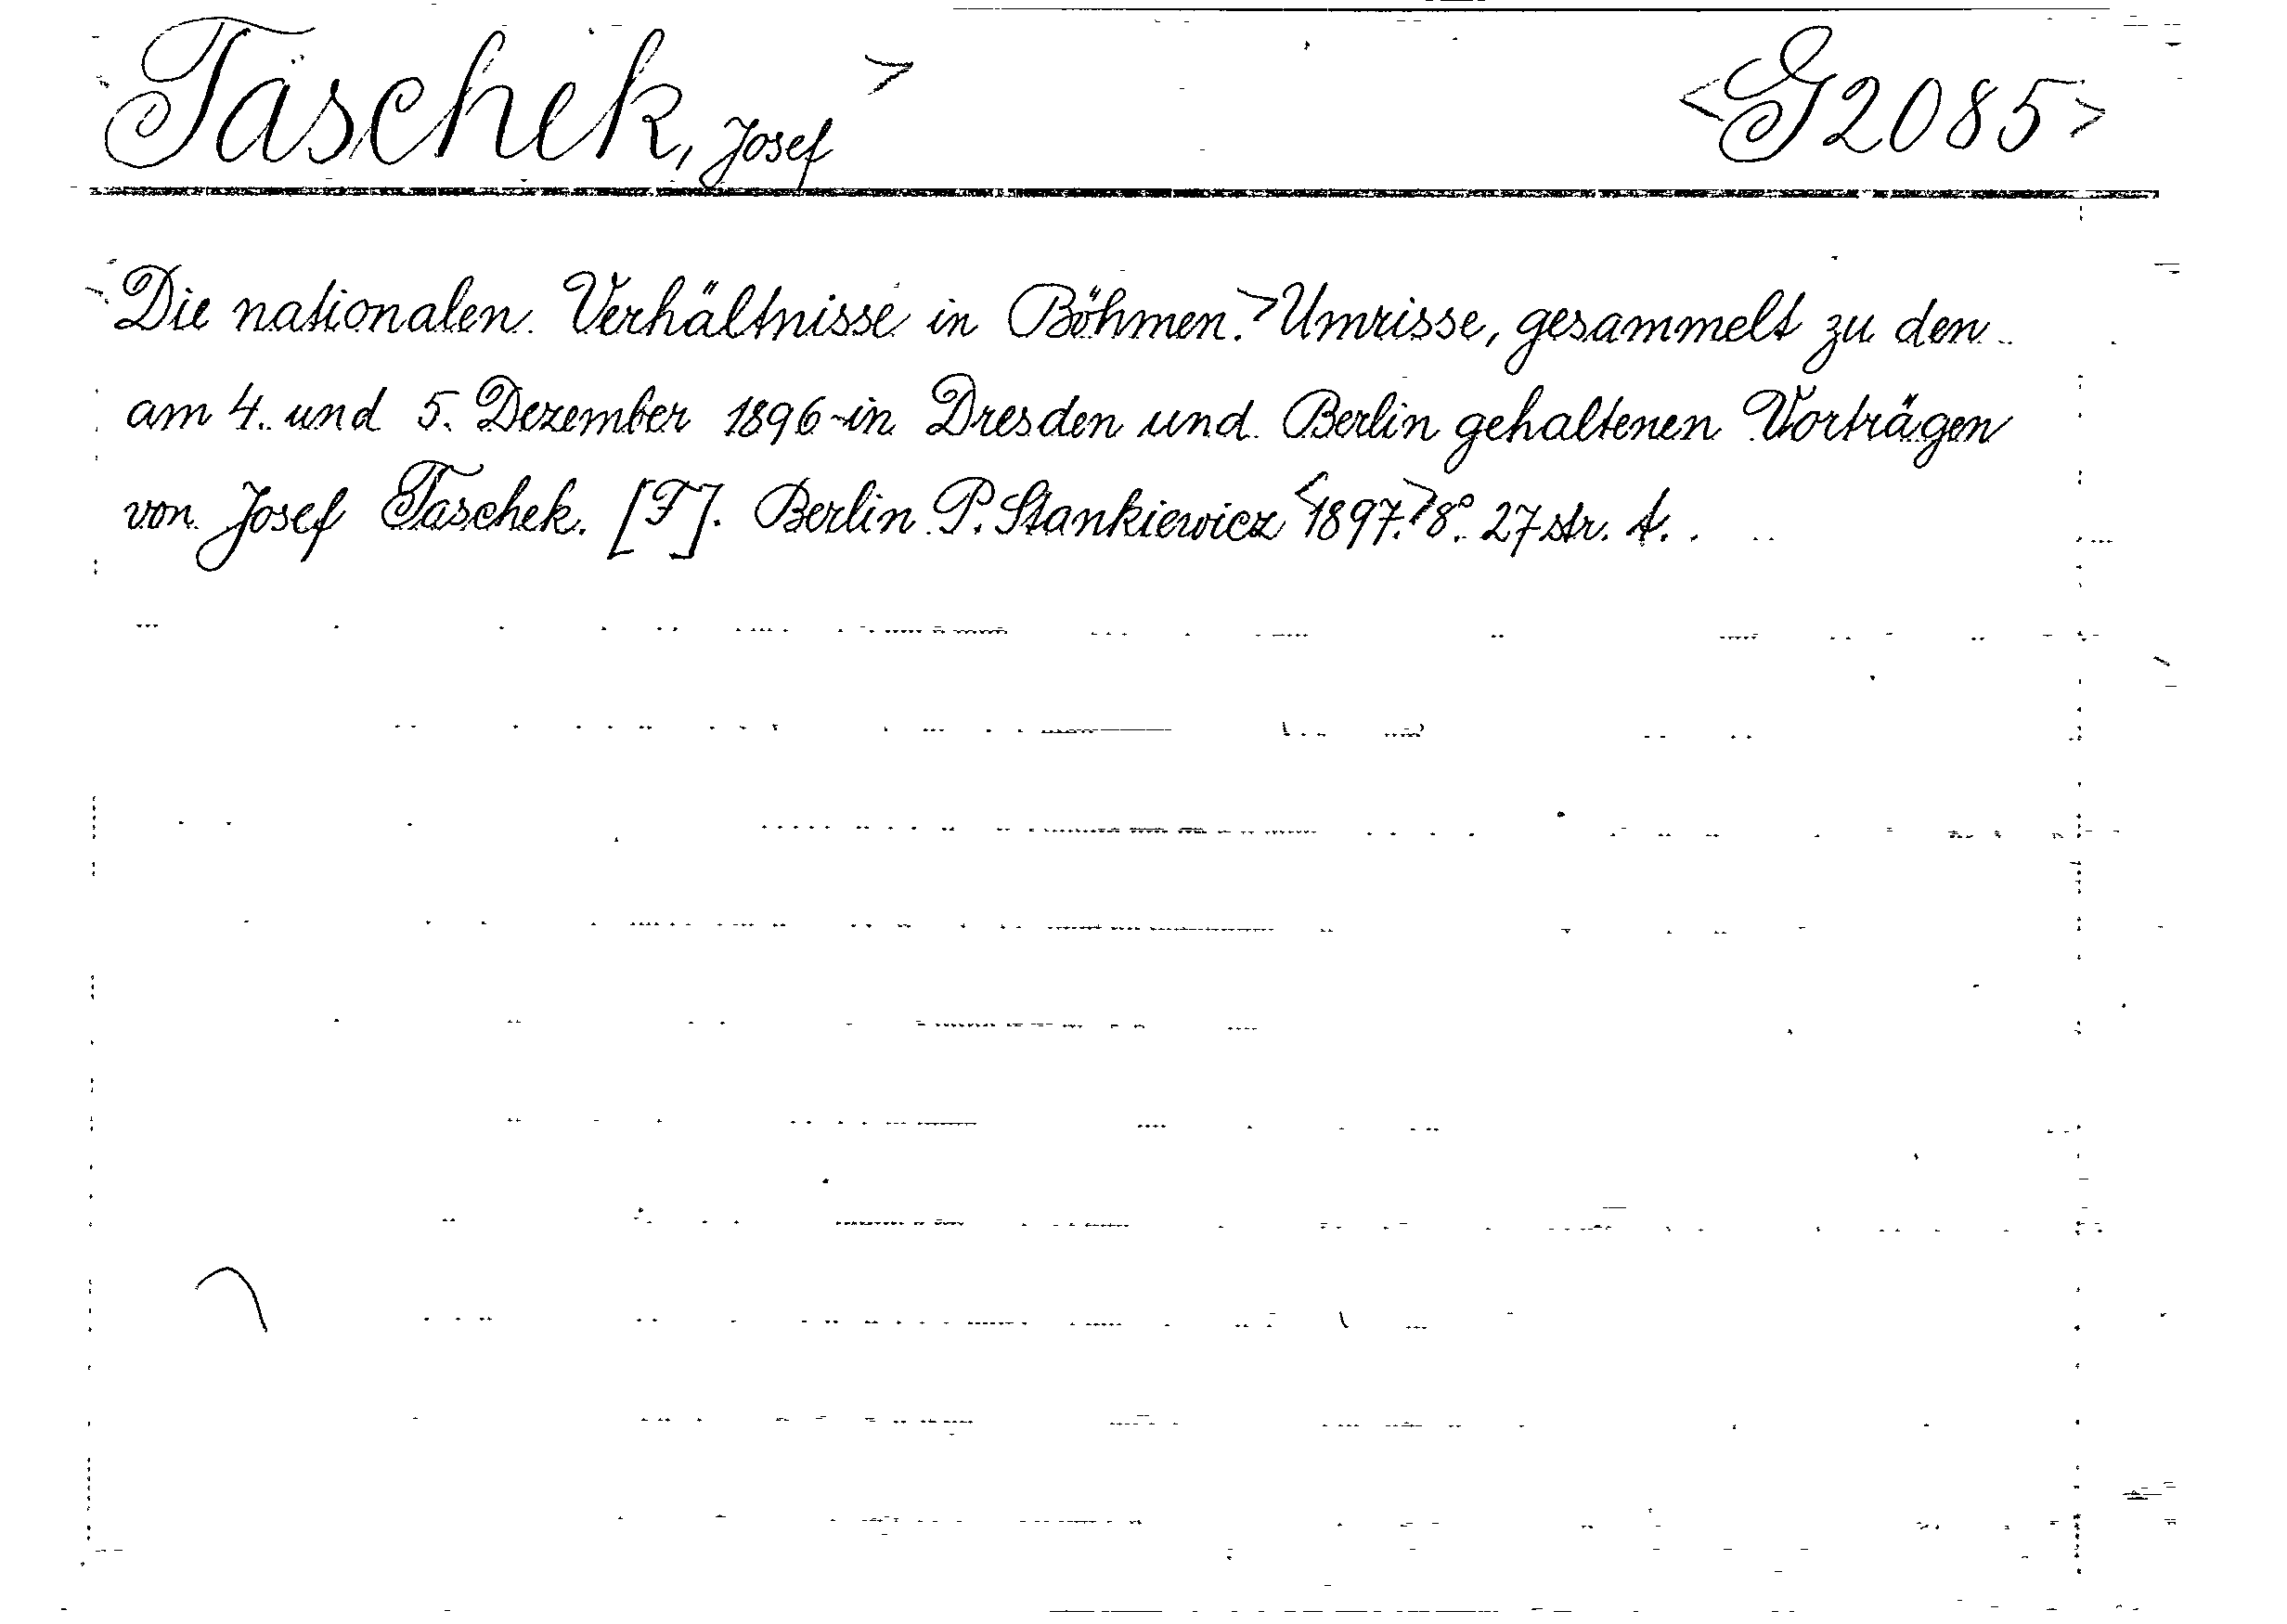 Taschek, Josef > <G 2085>
Die nationalen Verhältnisse in Böhmen.> Umrisse, gesammelt zu den
am 4. und 5. Dezember 1896 in Dresden und Berlin gehaltenen Vorträgen
von Josef Taschek. [F]. Berlin P. Stankiewicz <1897.> 8°. 27 str. t.